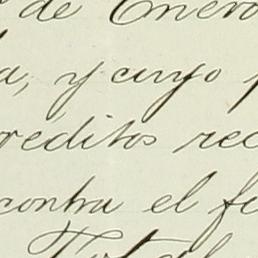 de Enero
a, y cuyo
réditos rec
contra el fe
Total